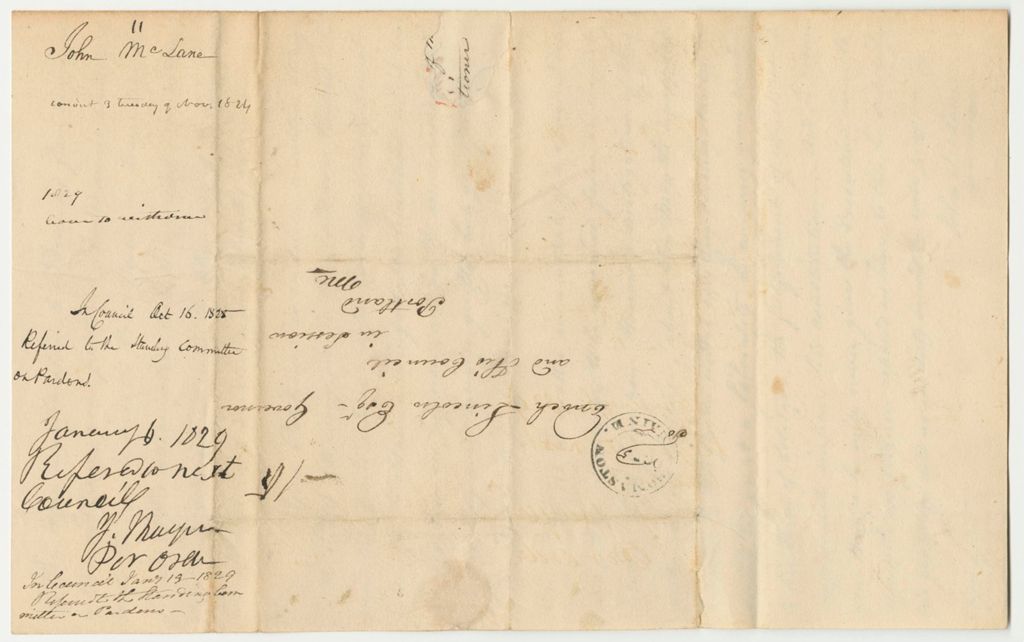 11
John McLane
convict 3 tuesday of Nov. 1824
1829
leave to withdraw
In Council Oct 16. 1828
Referred to the Standing Committee
on Pardons.
January 6. 1829
Refered to next
Council
Per Order
In Council Jany 13 - 1829
Referred to the Standing Com
mittee on Pardons -
To
Enoch Lincoln Esqr - Governor
and His Council
in Session
Portland
Me
THOMASTON
MAINE.
tioner